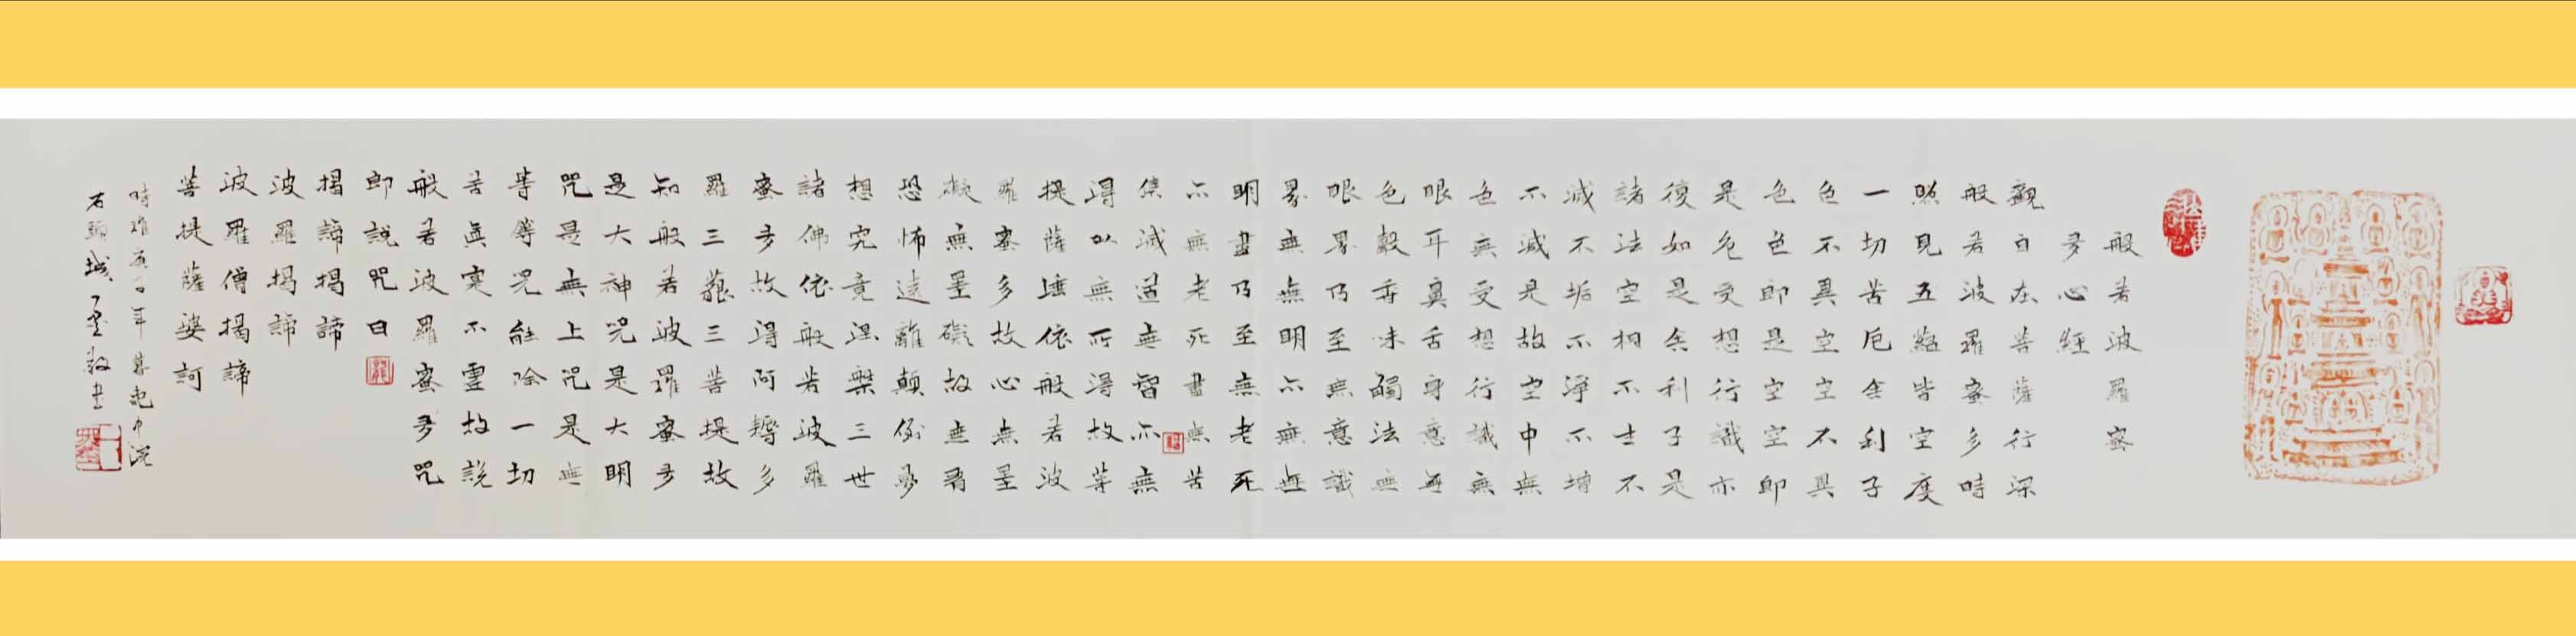 般若波羅蜜
多心經
觀自在菩薩行深
般若波羅蜜多時
照見五蘊皆空度
一切苦厄舍利子
色不異空空不異
色色即是空空即
是色受想行識亦
復如是舍利子是
諸法空相不生不
滅不垢不淨不增
不減是故空中無
色無受想行識無
眼耳鼻舌身意無
色聲香味觸法無
眼界乃至無意識
界無無明亦無無
明盡乃至無老死
亦無老死盡無苦
集滅道無智亦無
得以無所得故菩
提薩埵依般若波
羅蜜多故心無罣
礙無罣礙故無有
恐怖遠離顛倒夢
想究竟涅槃三世
諸佛依般若波羅
蜜多故得阿耨多
羅三藐三菩提故
知般若波羅蜜多
是大神咒是大明
咒是無上咒是無
等等咒能除一切
苦真實不虛故說
般若波羅蜜多咒
即說咒曰
揭諦揭諦
波羅揭諦
波羅僧揭諦
菩提薩婆訶
時維庚子年暮春中浣
石頭城敬書